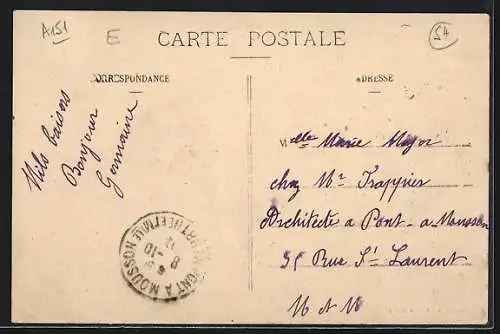 A151
E
54
CARTE POSTALE
CORRESPONDANCE
ADRESSE
Mils baisers
Bonjour
Germaine
Mlle Marie Major
chez Mr Trappier
Architecte a Pont-a Mousson
35 Rue St Laurent
M et M
PONT A MOUSSON
MEURTHE ET MLLE
8 -10